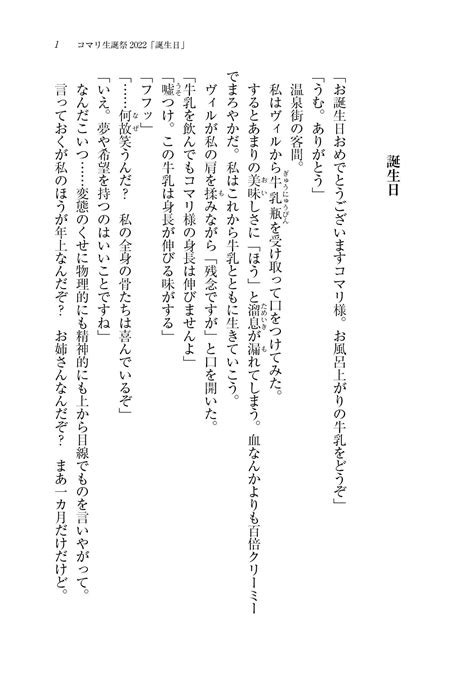 1　コマリ生誕祭 2022「誕生日」
誕生日
「お誕生日おめでとうございますコマリ様。お風呂上がりの牛乳をどうぞ」
「うむ。ありがとう」
温泉街の客間。
私はヴィルから牛乳瓶を受け取って口をつけてみた。
するとあまりの美味しさに「ほう」と溜息が漏れてしまう。血なんかよりも百倍クリーミー
でまろやかだ。私はこれから牛乳とともに生きていこう。
ヴィルが私の肩を揉みながら「残念ですが」と口を開いた。
「牛乳を飲んでもコマリ様の身長は伸びませんよ」
「嘘つけ。この牛乳は身長が伸びる味がする」
「フフッ」
「……何故笑うんだ？　私の全身の骨たちは喜んでいるぞ」
「いえ。夢や希望を持つのはいいことですね」
なんだこいつ……変態のくせに物理的にも精神的にも上から目線でものを言いやがって。
言っておくが私のほうが年上なんだぞ？　お姉さんなんだぞ？　まあ一カ月だけだけど。